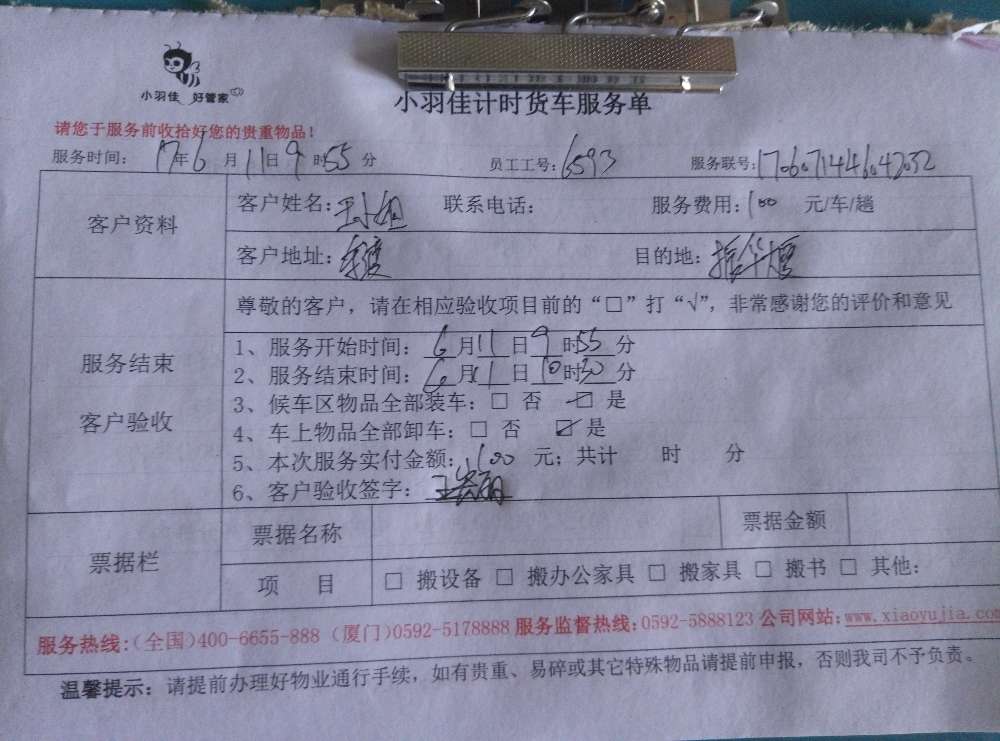 小羽佳 好管家
小羽佳计时货车服务单
请您于服务前收拾好您的贵重物品！
服务时间： 17年6月11日9时55分 员工工号：6593 服务联号：
客户资料
客户姓名：王小姐 联系电话： 服务费用：100 元/车/趟
客户地址： 目的地：
服务结束
客户验收
尊敬的客户，请在相应验收项目前的“□”打“√”，非常感谢您的评价和意见
1、服务开始时间：6月11日9时55分
2、服务结束时间：6月11日10时30分
3、候车区物品全部装车：□ 否 ☑ 是
4、车上物品全部卸车：□ 否 ☑ 是
5、本次服务实付金额：100 元；共计 时 分
6、客户验收签字：
票据栏
票据名称 票据金额
项 目 □ 搬设备 □ 搬办公家具 □ 搬家具 □ 搬书 □ 其他：
服务热线：(全国)400-6655-888 (厦门)0592-5178888 服务监督热线：0592-5888123 公司网站：www.xiaoyujia.com
温馨提示：请提前办理好物业通行手续，如有贵重、易碎或其它特殊物品请提前申报，否则我司不予负责。